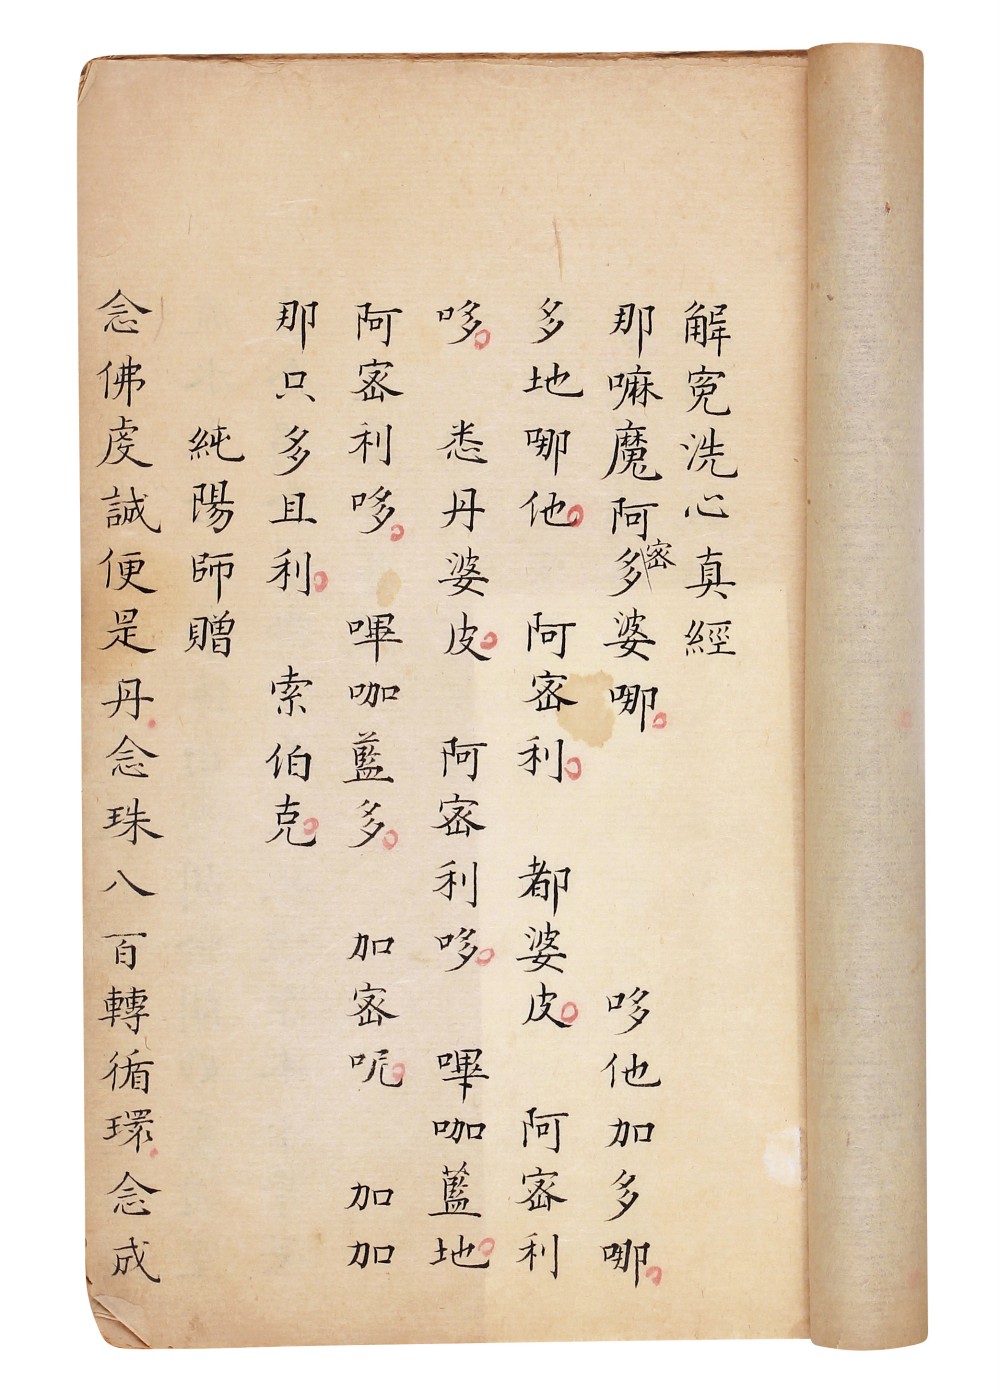 解寃洗心真經
那嘛魔阿密多婆哪 哆他加多哪
多地哪他 阿宻利 都婆皮 阿宻利
哆 悉丹婆皮 阿宻利哆 嗶咖藍地
阿宻利哆 嗶咖藍多 加宻呢 加加
那只多且利 索伯克
純陽師贈
念佛虔誠便是丹念珠八百轉循環念成